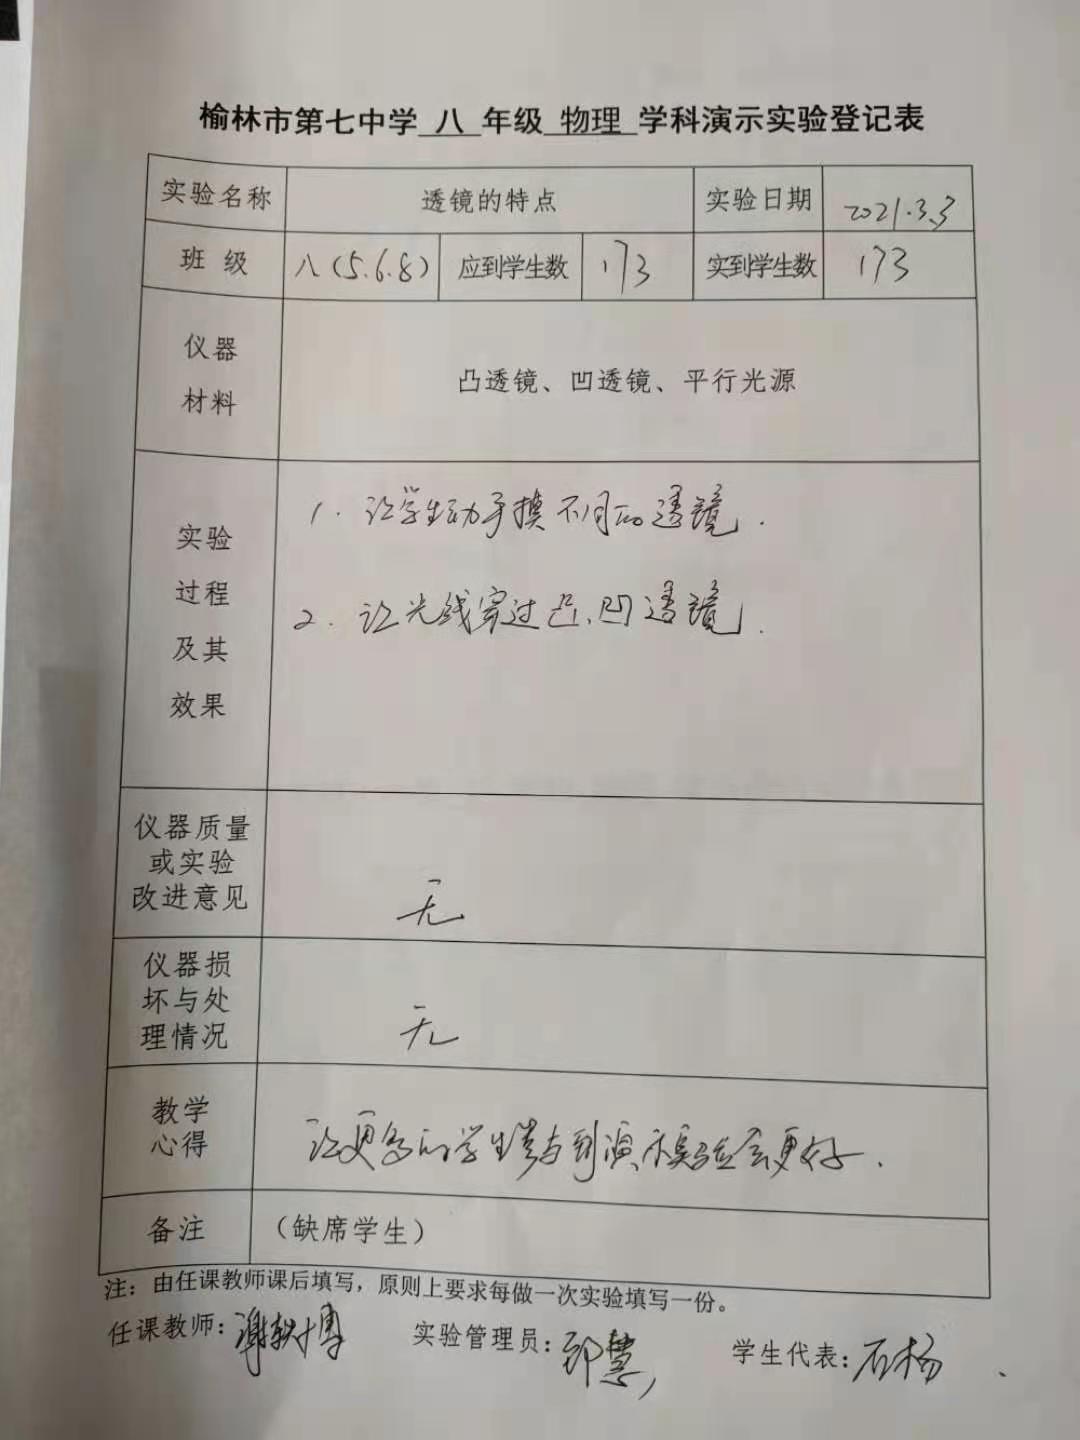 榆林市第七中学 八 年级 物理 学科演示实验登记表
实验名称 透镜的特点 实验日期 2021.3.3
班 级 八(5.6.8) 应到学生数 173 实到学生数 173
仪器
材料
凸透镜、凹透镜、平行光源
实验
过程
及其
效果
1. 让学生动手摸不同的透镜.
2. 让光线穿过凸、凹透镜.
仪器质量
或实验
改进意见
无
仪器损
坏与处
理情况
无
教学
心得
让更多的学生参与到演示实验会更好.
备注 (缺席学生)
注:由任课教师课后填写,原则上要求每做一次实验填写一份。
任课教师: 实验管理员: 慧 学生代表:石杨